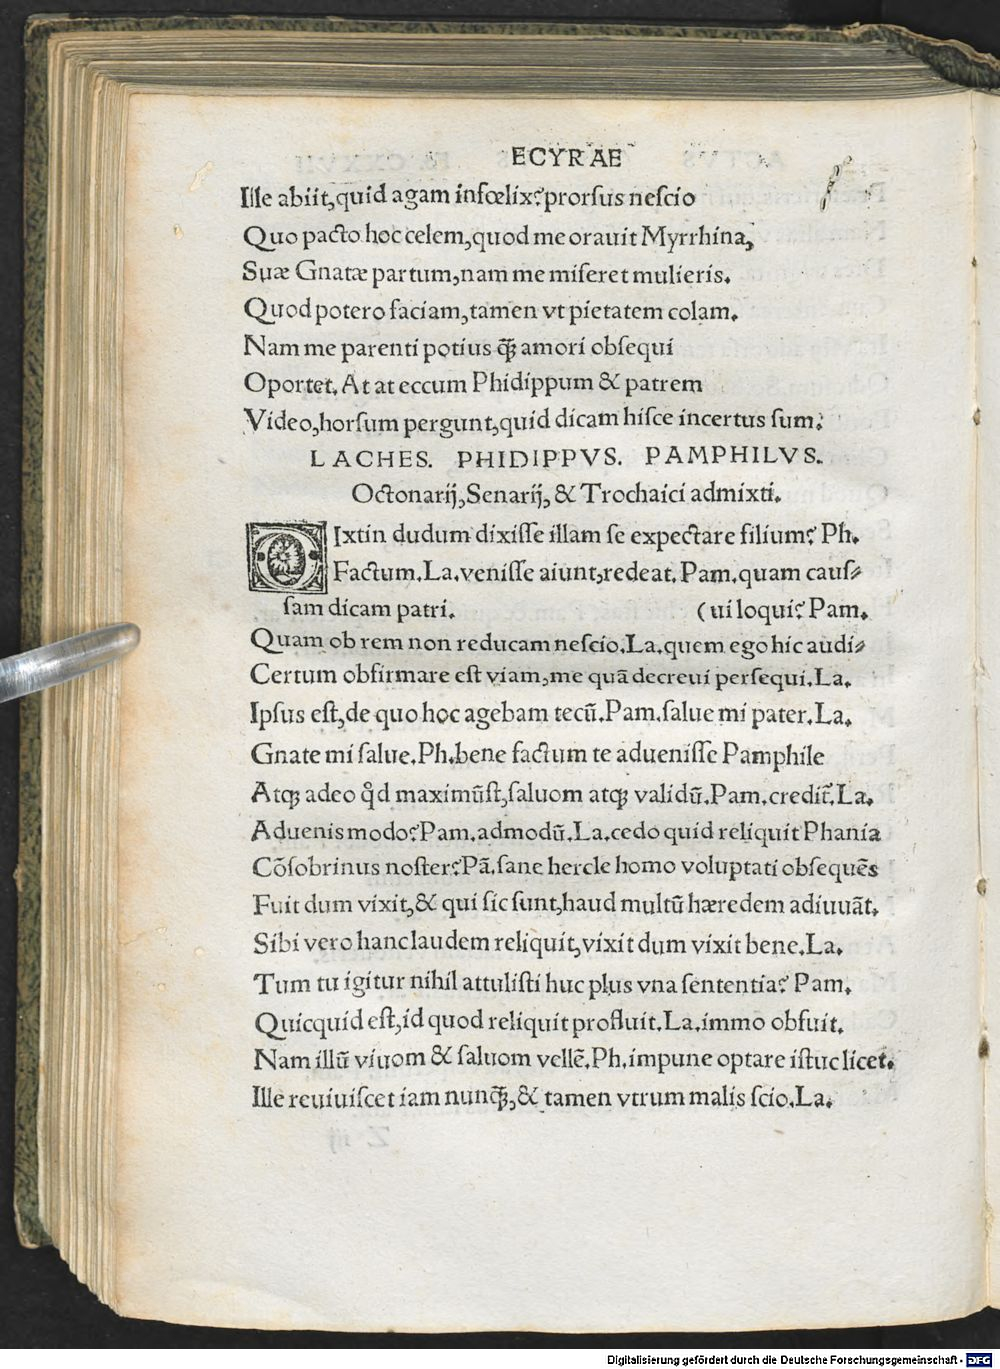 ECYRAE
Ille abiit,quid agam infœlix?prorſus neſcio
Quo pacto hoc celem,quod me orauit Myrrhina,
Suæ Gnatæ partum,nam me miſeret mulieris.
Quod potero faciam,tamen vt pietatem colam.
Nam me parenti potius q̄ꝫ amori obſequi
Oportet. At at eccum Phidippum & patrem
Video,horſum pergunt,quid dicam hiſce incertus ſum.
LACHES. PHIDIPPVS. PAMPHILVS.
Octonarij,Senarij, & Trochaici admixti.
DIxtin dudum dixiſſe illam ſe expectare filium? Ph.
Factum.La.veniſſe aiunt,redeat.Pam.quam cauſ⸗
ſam dicam patri. (ui loqui? Pam.
Quam ob rem non reducam neſcio.La.quem ego hic audi⸗
Certum obfirmare eſt viam,me quā decreui perſequi.La.
Ipſus eſt,de quo hoc agebam tecū.Pam.ſalue mi pater.La.
Gnate mi ſalue.Ph.bene factum te adueniſſe Pamphile
Atqꝫ adeo q̊d maximūſt,ſaluom atqꝫ validū.Pam.credit̄.La.
Aduenis modo?Pam.admodū.La.cedo quid reliquit Phania
Cōſobrinus noſter?Pā.ſane hercle homo voluptati obſequēs
Fuit dum vixit,& qui ſic ſunt,haud multū hæredem adiuuāt.
Sibi vero hanc laudem reliquit,vixit dum vixit bene.La.
Tum tu igitur nihil attuliſti huc plus vna ſententia? Pam.
Quicquid eſt,id quod reliquit profluit.La.immo obfuit.
Nam illū viuom & ſaluom vellē.Ph.impune optare iſtuc licet.
Ille reuiuiſcet iam nunq̄ꝫ,& tamen vtrum malis ſcio.La.
Digitalisierung gefördert durch die Deutsche Forschungsgemeinschaft - DFG